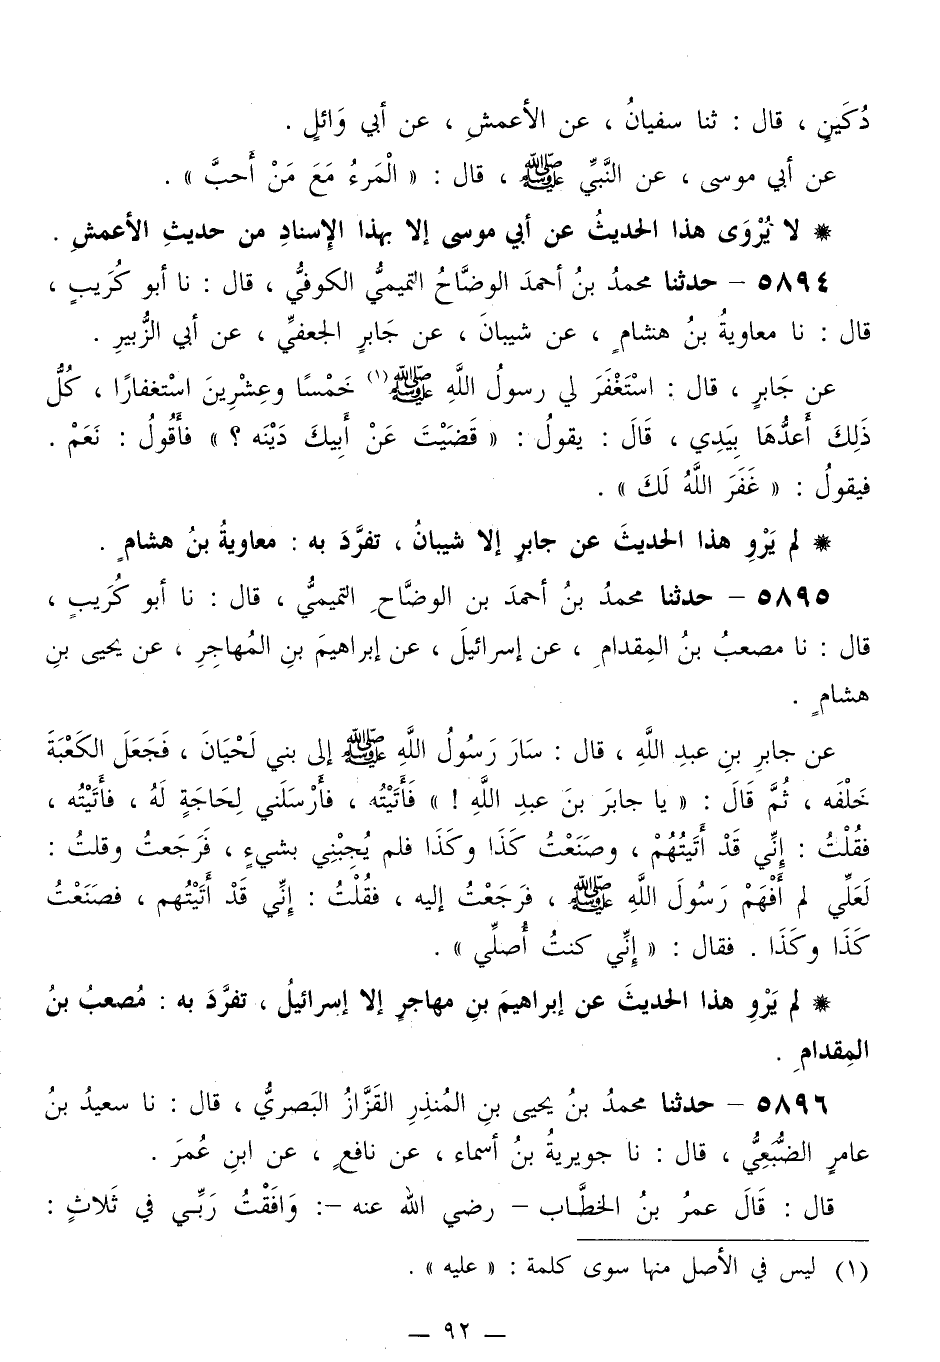 دُكَينٍ ، قال : ثنا سفيانُ ، عن الأعمشِ ، عن أبي وَائلٍ .
عن أبي موسى ، عن النَّبِّي ﷺ ، قال : « الْمَرءُ مَعَ مَنْ أَحبَّ » .
* لا يُرْوَى هذا الحديثُ عن أبي موسى إلا بهذا الإسنادِ من حديثِ الأعمشِ .
٥٨٩٤ - حدثنا محمدُ بنُ أحمدَ الوضَّاحُ التميميُّ الكوفيُّ ، قال : نا أبو كُريبٍ ،
قال : نا معاويةُ بنُ هشامٍ ، عن شيبانَ ، عن جَابرٍ الجعفيِّ ، عن أبي الزُّبيرِ .
عن جَابرٍ ، قال : اسْتَغْفَرَ لي رسولُ اللَّهِ ﷺ (١) خَمْسًا وعِشْرِينَ اسْتغفارًا ، كُلُّ
ذَلِكَ أَعدُّهَا بِيَدِي ، قَالَ : يقولُ : « قَضَيْتَ عَنْ أَبيكَ دَيْنَه ؟ » فأَقُولُ : نَعَمْ .
فيقولُ : « غَفَرَ اللَّهُ لَكَ » .
* لم يَرْوِ هذا الحديثَ عن جابرٍ إلا شيبانُ ، تفرَّدَ به : معاويةُ بنُ هشامٍ .
٥٨٩٥ - حدثنا محمدُ بنُ أحمدَ بن الوضَّاحِ التميميُّ ، قال : نا أبو كُريبٍ ،
قال : نا مصعبُ بنُ المِقدامِ ، عن إسرائيلَ ، عن إبراهيمَ بنِ المُهاجِرِ ، عن يحيى بنِ
هشامٍ .
عن جابرِ بنِ عبدِ اللَّهِ ، قال : سَارَ رَسُولُ اللَّهِ ﷺ إلى بني لَحْيَانَ ، فَجَعَلَ الكَعْبَةَ
خَلْفَه ، ثُمَّ قَالَ : « يا جابرَ بنَ عبدِ اللَّهِ ! » فَأَتَيْتُه ، فأَرْسَلَني لِحَاجَةٍ لَهُ ، فأَتَيْتُه ،
فقُلْتُ : إِنِّي قَدْ أَتَيتُهُمْ ، وصنَعْتُ كَذَا وكَذَا فلم يُجِبْنِي بشيءٍ ، فَرَجَعتُ وقلتُ :
لَعَلِّي لم أَفْهَمْ رَسُولَ اللَّهِ ﷺ ، فرَجَعْتُ إليه ، فقُلْتُ : إنِّي قَدْ أَتَيْتُهم ، فصنَعْتُ
كَذَا وكَذَا . فقال : « إنِّي كنتُ أُصلِّي » .
* لم يَرْوِ هذا الحديثَ عن إبراهيمَ بنِ مهاجرٍ إلا إسرائيلُ ، تفرَّدَ به : مُصعبُ بنُ
المِقدامِ .
٥٨٩٦ - حدثنا محمدُ بنُ يحيى بنِ المُنذرِ القَزَّازُ البَصريُّ ، قال : نا سعيدُ بنُ
عامرٍ الضُّبَعِيُّ ، قال : نا جويريةُ بنُ أسماء ، عن نافعٍ ، عن ابنِ عُمرَ .
قال : قَالَ عمرُ بنُ الخطَّاب - رضي الله عنه -: وَافَقْتُ رَبِّي في ثَلاثٍ :
(١) ليس في الأصل منها سوى كلمة : « عليه » .
— ٩٢ —